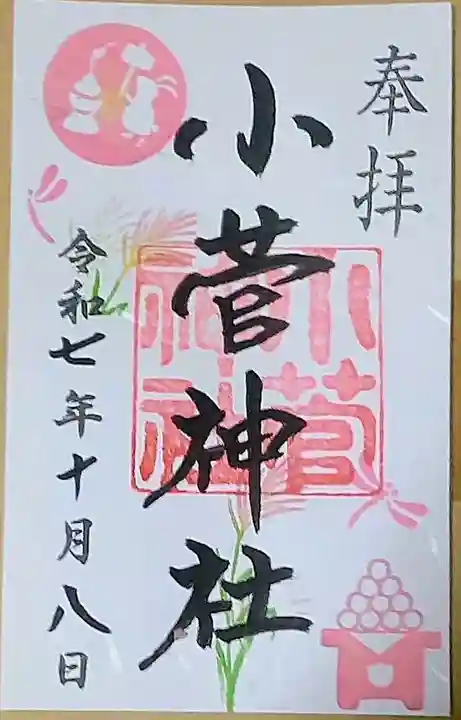 奉拝
小菅神社
小菅神社
令和七年十月八日